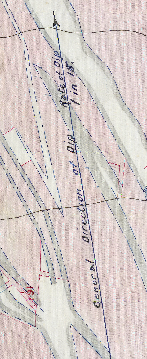 General direction of Dip
Rate of Dip
1 in 18